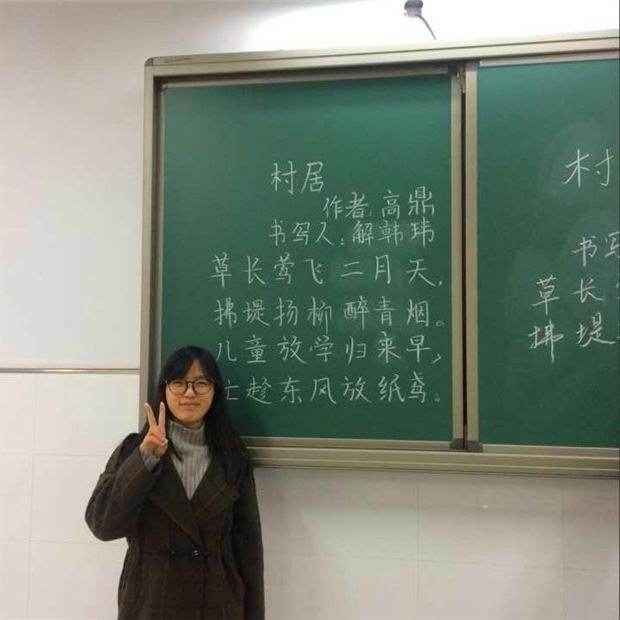 村居
作者:高鼎
书写人:解韩玮
草长莺飞二月天,
拂堤扬柳醉青烟。
儿童放学归来早,
忙趁东风放纸鸢。
村
书写
草长
拂堤